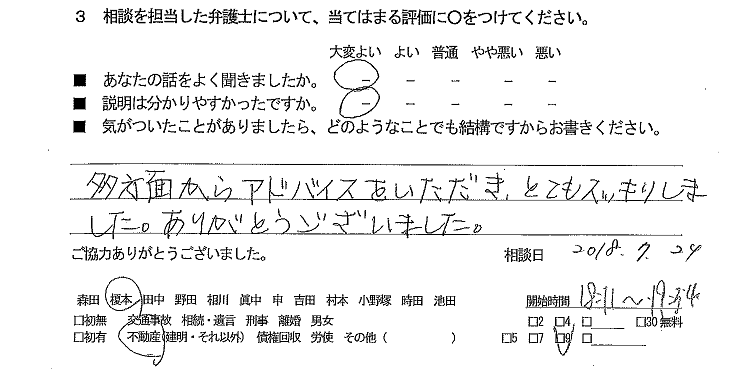 3 相談を担当した弁護士について、当てはまる評価に〇をつけてください。
大変よい よい 普通 やや悪い 悪い
■ あなたの話をよく聞きましたか。 － － － － －
■ 説明は分かりやすかったですか。 － － － － －
■ 気がついたことがありましたら、どのようなことでも結構ですからお書きください。
多方面からアドバイスをいただき、とてもスッキリしま
した。ありがとうございました。
ご協力ありがとうございました。 相談日 2018.7.24
森田 榎本 田中 野田 相川 眞中 申 吉田 村本 小野塚 時田 池田 開始時間 18:11～19:34
□初無 交通事故 相続・遺言 刑事 離婚 男女 □2 □4 □ □30無料
□初有 不動産(建明・それ以外) 債権回収 労使 その他( ) □5 □7 □9 □